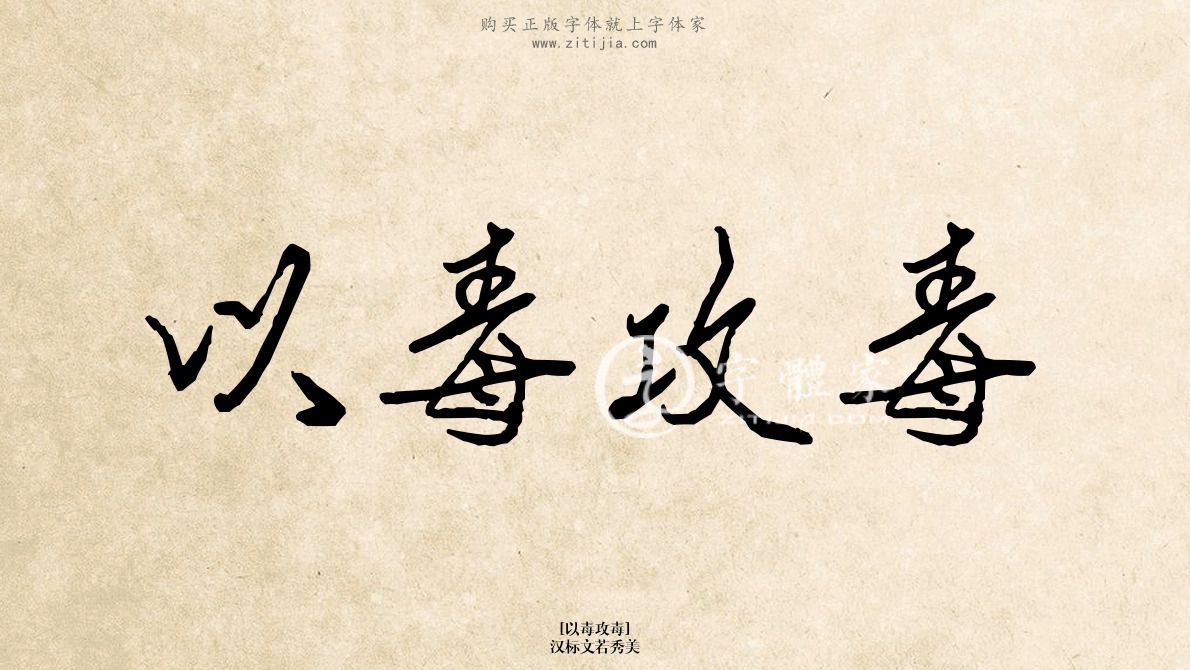 购买正版字体就上字体家
www.zitijia.com
以毒攻毒
字體家
ZITIJIA.COM
[以毒攻毒]
汉标文若秀美